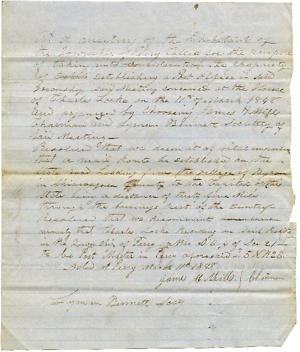 At a meeting of the Inhabitants of
the Township of Perry Called for the purpose
of taking into consideration the propriety
of Establishing a Post Office in said
Township Said Meeting convened at the House
of Charles Locke on the 11th of March 1848
and organized by Choosing James H Mills
Chairman and Lyman Bennett Secretary of
said Meeting
Resolved that we deem it of vital importance
that a mail Route be established on the
State road Leading from the village of Byron
in Shiawassee County to the Capitol of the
State being a distance of thirty five Miles
through the heaviest part of the country
Resolved that we Recommend
that Charles Locke Residing on said Road
in the Township of Perry of Sec 21
to be Post Master in Perry aforesaid 5 N R 2 E
Dated at Perry March 11th 1848
James H. Mills Chairman
Lyman Bennett Secy